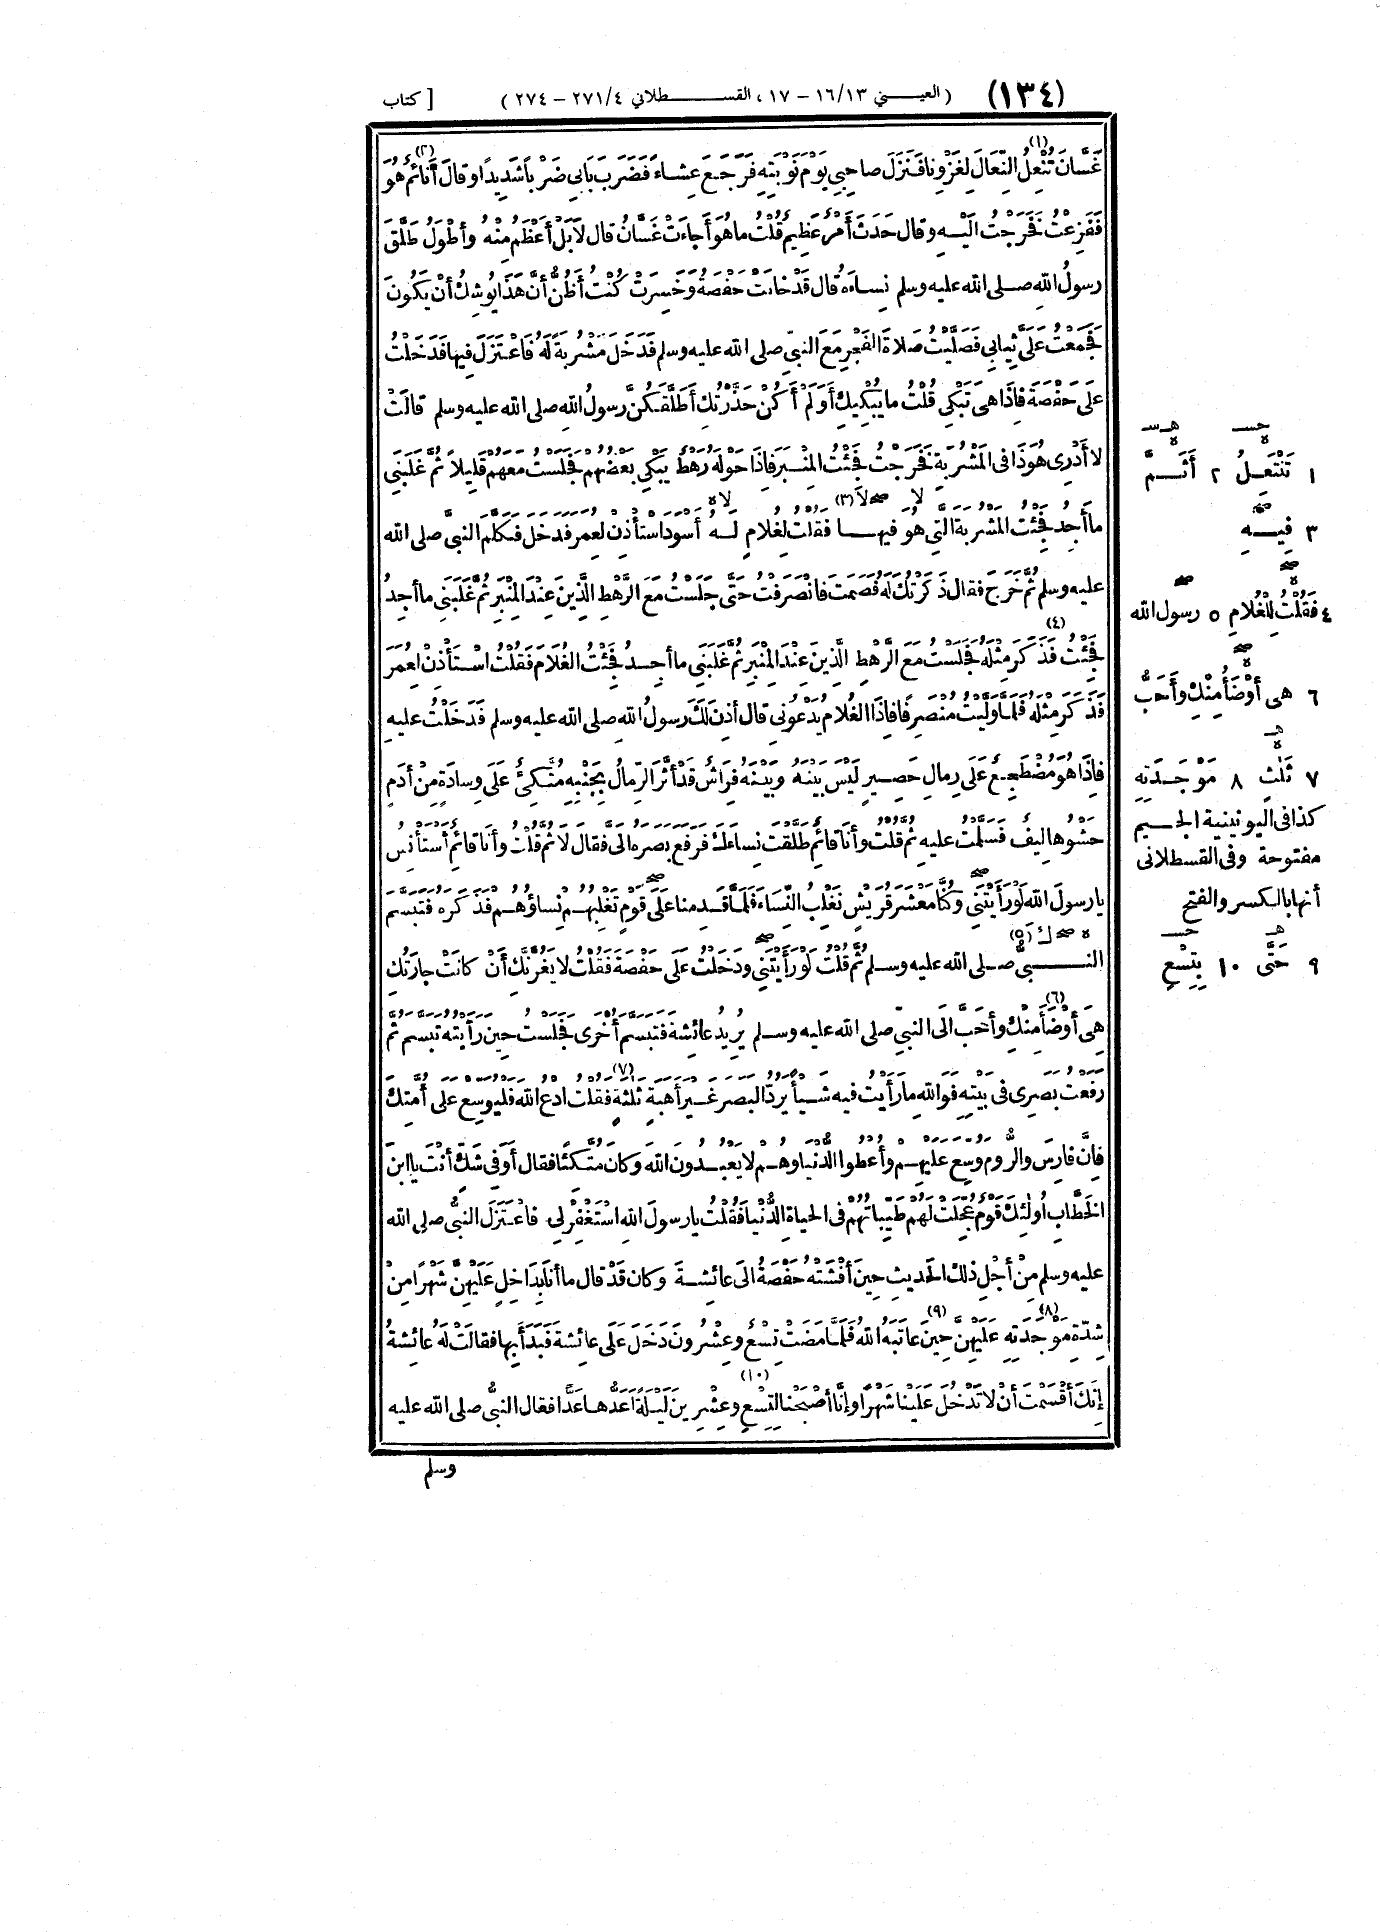 (١٣٤) (العيني ١٦/١٣ - ١٧، القسطلاني ٢٧١/٤ - ٢٧٤) [كتاب
غَسَّانَ تُنْعِلُ (١) النِّعَالَ لِغَزْوِنا فَنَزَلَ صاحِبِي يَوْمَ نَوْبَتِهِ فَرَجَعَ عِشاءً فَضَرَبَ بَابِي ضَرْباً شَدِيدًا وقالَ أَنائِمٌ (٢) هُوَ
فَفَزِعْتُ فَخَرَجْتُ الَيْهِ وقال حَدَثَ أَمْرٌ عَظِيمٌ قُلْتُ ماهُوَ أَجاءَتْ غَسَّانُ قال لاَ بَلْ أَعْظَمُ مِنْهُ وأَطْوَلُ طَلَّقَ
رسولُ اللهِ صلى الله عليه وسلم نِساءَهُ قال قَدْ خابَتْ حَفْصَةُ وخَسِرَتْ كُنْتُ أَظُنُّ أنَّ هَذَا يُوشِكُ أنْ يَكُونَ
فَجَمَعْتُ عَلَىَّ ثِيابِي فَصَلَّيْتُ صَلاةَ الفَجْرِ مَعَ النبيِّ صلى الله عليه وسلم فَدَخَلَ مَشْرُبةً لَهُ فَاعْتَزَلَ فِيها فَدَخَلْتُ
عَلَى حَفْصَةَ فإذَا هِىَ تَبْكِي قُلْتُ ما يُبْكِيكِ أَوَلَمْ أَكُنْ حَذَّرْتُكِ أَطَلَّقَكُنَّ رسولُ اللهِ صلى الله عليه وسلم قالَتْ
لا أَدْرِى هُوَ ذَا فى المَشْرُبةِ فَخَرَجْتُ فَجِئْتُ المِنْبَرَ فإذَا حَوْلَهُ رَهْطٌ يَبْكِي بَعْضُهُمْ فَجَلَسْتُ معهم قَلِيلاً ثُمَّ غَلَبَنِي
ما أَجِدُ فَجِئْتُ المَشْرُبةَ الَّتِي هُوَ فيها (٣) فَقُلْتُ لِغُلامٍ لَهُ أَسْوَدَ اسْتَأْذِنْ لِعمرَ فَدَخَلَ فَكَلَّمَ النبيَّ صلى الله
عليه وسلم ثُمَّ خَرَجَ فقال ذَكَرْتُكَ لَهُ فَصَمَتَ فَانْصَرَفْتُ حَتَّى جَلَسْتُ مَعَ الرَّهْطِ الَّذِينَ عِنْدَ المِنْبَرِ ثُمَّ غَلَبَنِي ما أجِدُ
فَجِئْتُ فَذَكَرَ مِثْلَهُ فَجَلَسْتُ مَعَ الرَّهْطِ الَّذِينَ عِنْدَ المِنْبَرِ ثُمَّ غَلَبَنِي ما أجِدُ فَجِئْتُ الغُلامَ فَقُلْتُ (٤) اسْتَأْذِنْ لِعُمَرَ
فَذَكَرَ مِثْلَهُ فَلَمَّا وَلَّيْتُ مُنْصَرِفًا فإذَا الغُلامُ يَدْعُونِي قال أذِنَ لَكَ رسولُ اللهِ صلى الله عليه وسلم فَدَخَلْتُ عليه
فإذَا هُوَ مُضْطَجِعٌ عَلَى رِمالِ حَصِيرٍ لَيْسَ بَيْنَهُ وبَيْنَهُ فِرَاشٌ قَدْ أثَّرَ الرِّمالُ بِجَنْبِهِ مُتَّكِئٌ عَلَى وِسادَةٍ مِنْ أَدَمٍ
حَشْوُها لِيفٌ فَسَلَّمْتُ عليه ثُمَّ قُلْتُ وأنا قائمٌ طَلَّقْتَ نِساءَكَ فَرَفَعَ بَصَرَهُ الَىَّ فقال لا ثُمَّ قُلْتُ وأنَا قائمٌ أَسْتَأْنِسُ
يا رسولَ اللهِ لَوْ رَأَيْتَنِي وكُنَّا مَعْشَرَ قُرَيْشٍ نَغْلِبُ النِّساءَ فَلَمَّا قَدِمْنا عَلَى قَوْمٍ تَغْلِبُهُمْ نِساؤُهُمْ فَذَكَرَهُ فَتَبَسَّمَ
النبيُّ (٥) صلى الله عليه وسلم ثُمَّ قُلْتُ لَوْ رَأَيْتَنِي ودَخَلْتُ عَلَى حَفْصَةَ فَقُلْتُ لا يَغُرَّنَّكِ أنْ كانَتْ جارَتُكِ
هِىَ أَوْضَأَ (٦) مِنْكِ وأَحَبَّ الَى النبيِّ صلى الله عليه وسلم يُرِيدُ عائشةَ فَتَبَسَّمَ أُخْرَى فَجَلَسْتُ حِينَ رَأَيْتُهُ تَبَسَّمَ ثُمَّ
رَفَعْتُ بَصَرِى فى بَيْتِهِ فَوَاللهِ ما رَأَيْتُ فيه شَيْأً يَرُدُّ البَصَرَ غَيْرَ أَهَبَةٍ ثَلٰثَةٍ (٧) فَقُلْتُ ادْعُ اللهَ فَلْيُوَسِّعْ عَلَى أُمَّتِكَ
فإنَّ فارِسَ والرُّومَ وُسِّعَ عليهِمْ وأُعْطُوا الدُّنْيا وهُمْ لا يَعْبُدُونَ اللهَ وكانَ مُتَّكِئًا فقال أَوَفِى شَكٍّ أنْتَ يا ابنَ
الخَطَّابِ أُولٰئِكَ قَوْمٌ عُجِّلَتْ لَهُمْ طَيِّباتُهُمْ فى الحياةِ الدُّنْيا فَقُلْتُ يا رسولَ اللهِ اسْتَغْفِرْ لِي فاعْتَزَلَ النبيُّ صلى الله
عليه وسلم مِنْ أجْلِ ذلكَ الحَدِيثِ حِينَ أَفْشَتْهُ حَفْصَةُ الَى عائشةَ وكان قَدْ قال ما أنا بِدَاخِلٍ عَلَيْهِنَّ شَهْرًا مِنْ
شِدَّةِ مَوْجِدَتِهِ (٨) عَلَيْهِنَّ حِينَ (٩) عاتَبَهُ اللهُ فَلَمَّا مَضَتْ تِسْعٌ وعِشْرُونَ دَخَلَ عَلَى عائشةَ فَبَدَأَ بِها فقالَتْ لَهُ عائشةُ
إنَّكَ أَقْسَمْتَ أنْ لا تَدْخُلَ عَلَيْنا شَهْرًا وإنَّا أَصْبَحْنا لِتِسْعٍ (١٠) وعِشْرِينَ لَيْلَةً أَعُدُّها عَدًّا فقال النبيُّ صلى الله عليه
وسلم
١ تَنْتَعِلُ ٢ أَثَمَّ
٣ فِيهِ
٤ فَقُلْتُ لِلْغُلامِ ٥ رسول الله
٦ هى أَوْضَأُ مِنْكِ وأَحَبُّ
٧ ثَلٰثٍ ٨ مَوْجَدَتِهِ
كذا فى اليونينية الجيم
مفتوحة وفى القسطلانى
أنها بالكسر والفتح
٩ حَتَّى ١٠ بِتِسْعٍ